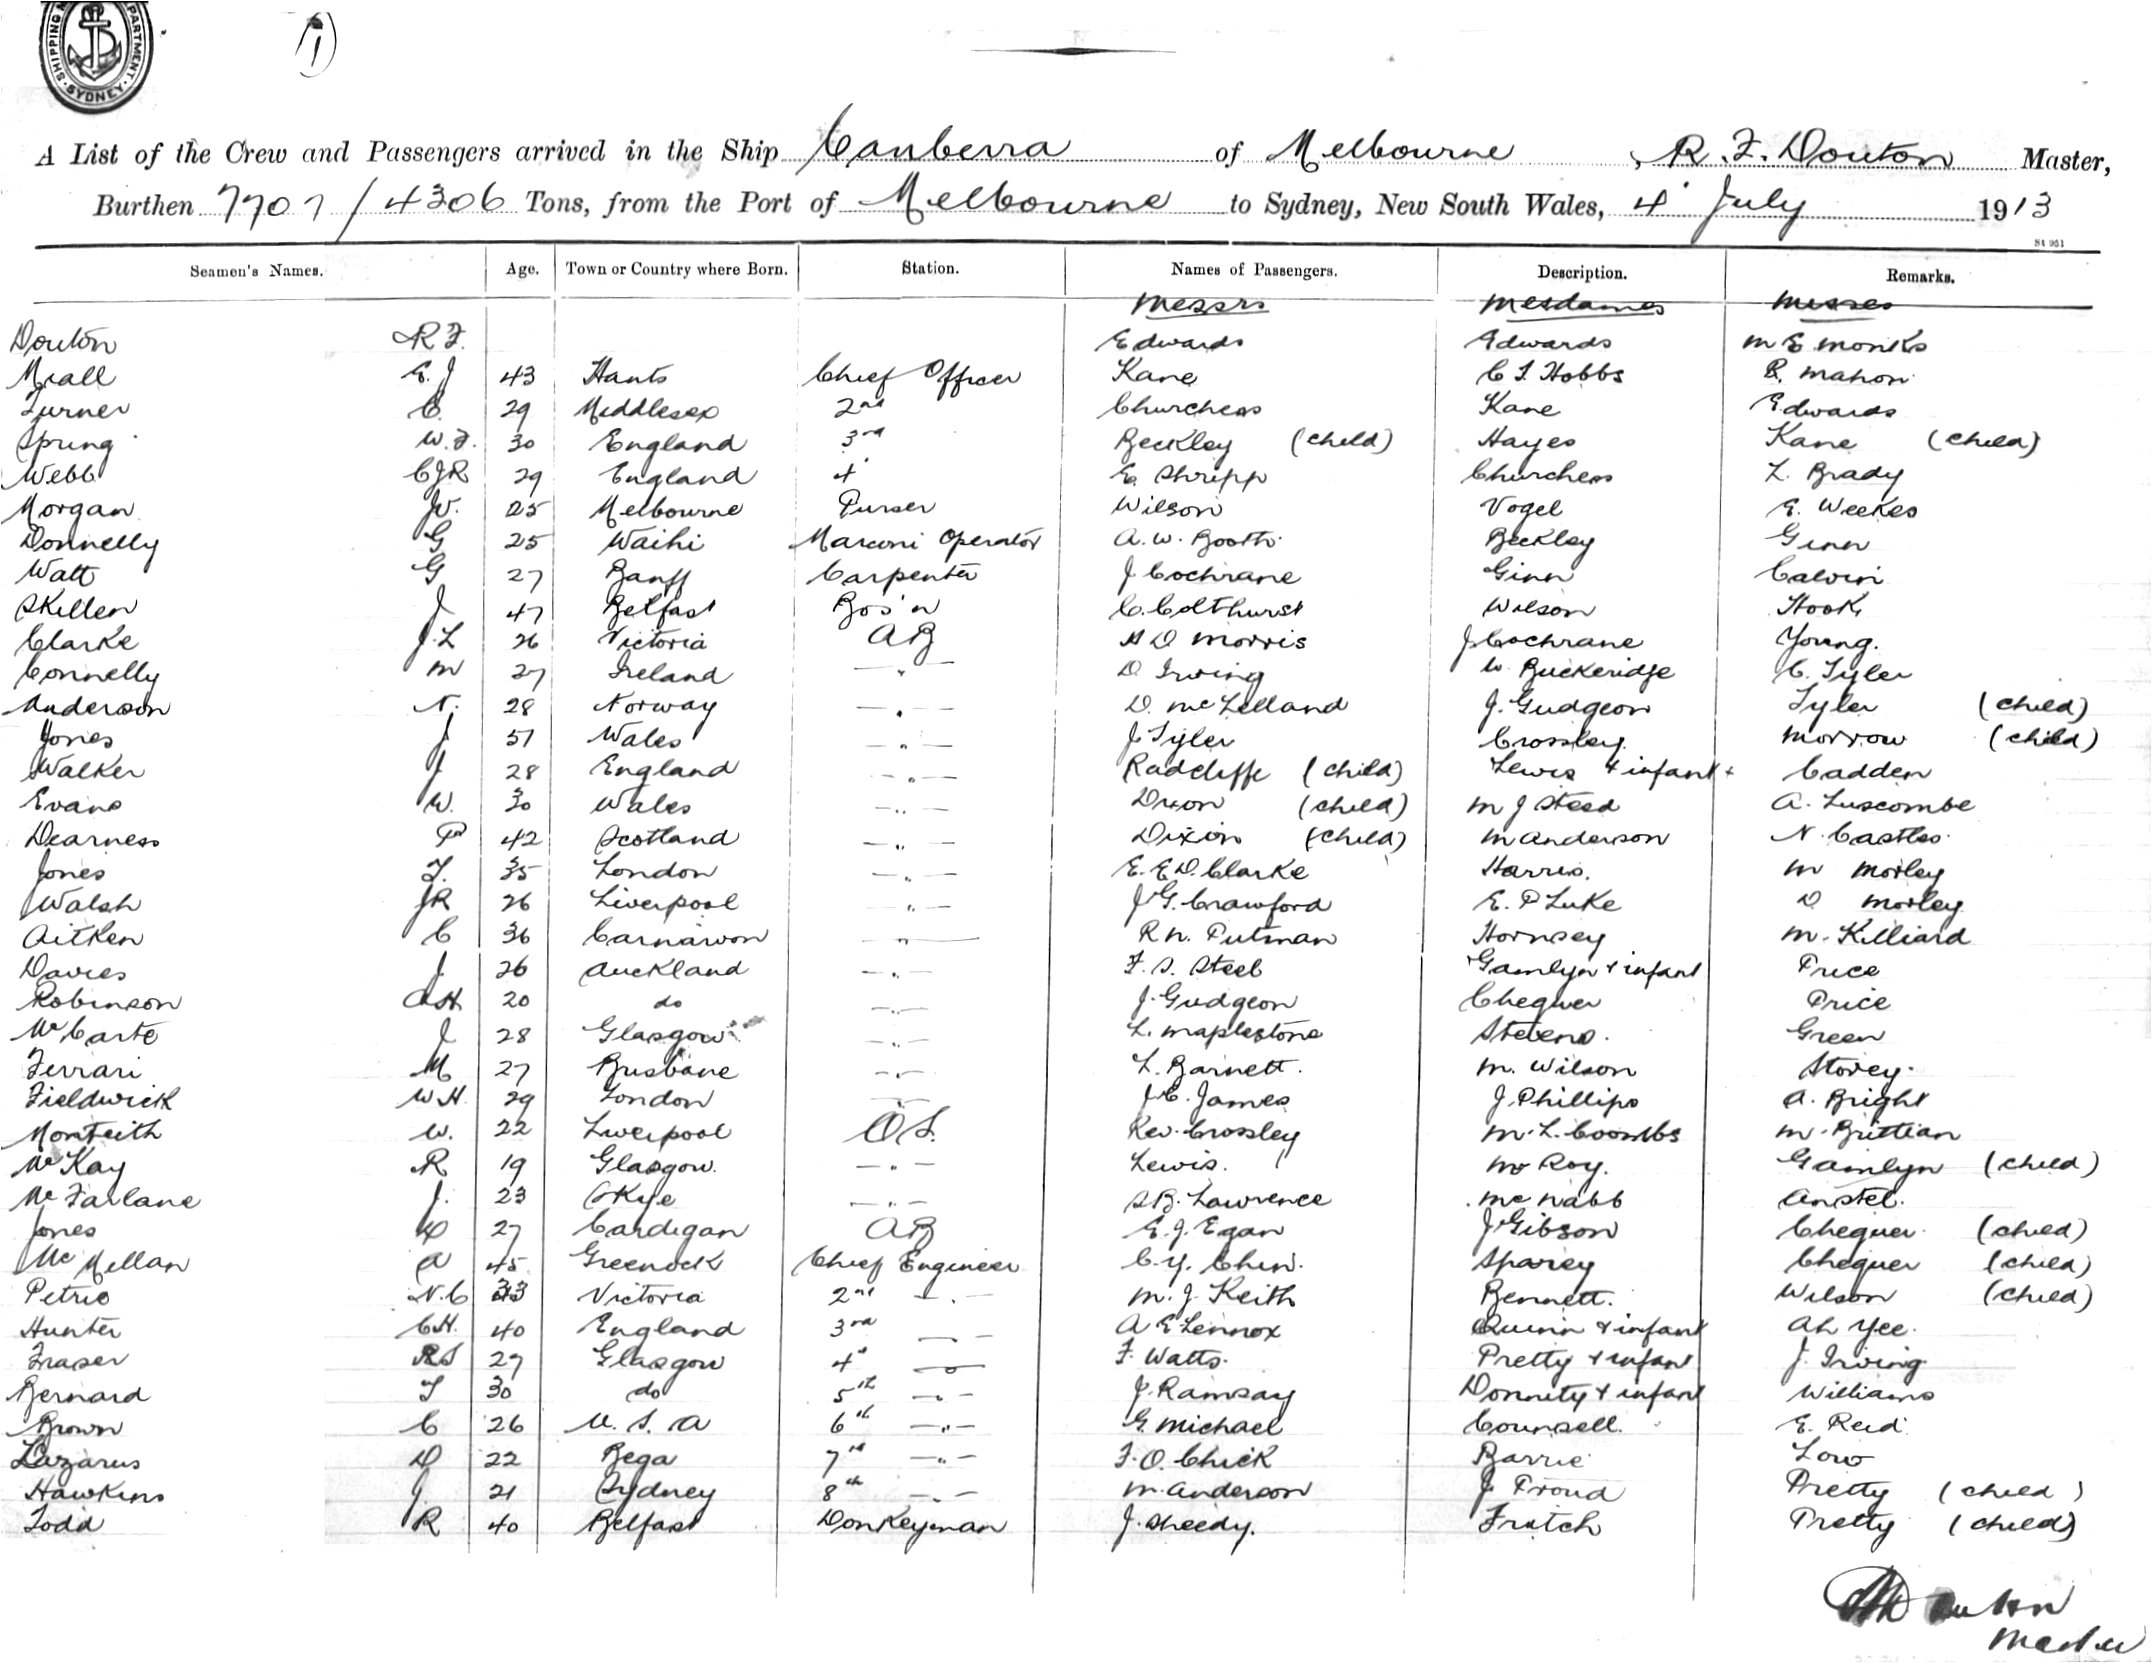 SHIPPING DEPARTMENT SYDNEY
(1)
A List of the Crew and Passengers arrived in the Ship Canberra of Melbourne, R. F. Douton Master,
Burthen 7707/4306 Tons, from the Port of Melbourne to Sydney, New South Wales, 4 July 1913
St 961
Seamen's Names. Age. Town or Country where Born. Station. Names of Passengers. Description. Remarks.
Messrs Mesdames Misses
Douton R F. Edwards Edwards M E Monks
Miall E. J 43 Hants Chief Officer Kane C I Hobbs R. Mahon
Turner C. 29 Middlesex 2nd Churchess Kane Edwards
Spring W. F. 30 England 3rd Beckley (child) Hayes Kane (child)
Webb CJR 29 England 4 E. Shripp Churchess L. Brady
Morgan W. 25 Melbourne Purser Wilson Vogel E. Weekes
Donnelly G 25 Waihi Marconi Operator A. W. Booth Beckley Ginn
Watt G 27 Banff Carpenter J Cochrane Ginn Calvin
Skillen J 47 Belfast Bos'n C. Colthurst Wilson Hook
Clarke J. L 26 Victoria AB H D Morris J Cochrane Young.
Connelly M 27 Ireland — " — D Irving W. Buckeridge C. Tyler
Anderson N. 28 Norway — " — D. McLelland J. Gudgeon Tyler (child)
Jones J 51 Wales — " — J Tyler Crossley Morrow (child)
Walker J 28 England — " — Radcliffe (child) Lewis & infant Cadden
Evans W. 30 Wales — " — Dixon (child) M J Steed A. Luscombe
Dearness P 42 Scotland — " — Dixon (child) M Anderson N. Castles
Jones T. 35 London — " — E. E D. Clarke Harris. M Morley
Walsh JR 26 Liverpool — " — J G. Crawford E. P Luke D Morley
Aitken C 36 Carnarvon — " — R N. Putman Hornsey M. Killiard
Davies J. 26 Auckland — " — F. S. Steel Gamlyn & infant Price
Robinson A H. 20 do — " — J. Gudgeon Chequer Price
McCarte J 28 Glasgow — " — L. Maplestone Stevens. Green
Ferrari M 27 Brisbane — " — L. Barnett. M. Wilson Storey.
Fieldwick W H. 29 London — " — J C. James J. Phillips A. Bright
Monteith W. 22 Liverpool O S. Rev. Crossley M. L. Coombs M. Brittian
McKay R 19 Glasgow. — " — Lewis. Roy. Gamlyn (child)
McFarlane J. 23 Skye — " — S B. Lawrence McNabb Anstel.
Jones 27 Cardigan AB E. J. Egan J Gibson Chequer (child)
McMillan A 45 Greenock Chief Engineer C. Y. Chin. Sparey Chequer (child)
Petrie N. C 33 Victoria 2nd — " — M. J. Keith Bennett. Wilson (child)
Hunter C H. 40 England 3rd — " — A E Lennox Quinn & infant Ah Yee.
Fraser R S 27 Glasgow 4 — " — F. Watts. Pretty & infant J. Irving
Bernard T 30 do 5th — " — J. Ramsay Donnity & infant Williams
Brown C 26 U. S. A 6th — " — G. Michael Counsell. E. Reid
Lazarus D 22 Bega 7th — " — F. O. Chick Barrie Low
Hawkins J 21 Sydney 8th — " — M. Anderson J Proud Pretty (child)
Todd R 40 Belfast Donkeyman J. Sheedy. Fritch Pretty (child)
Douton
Master